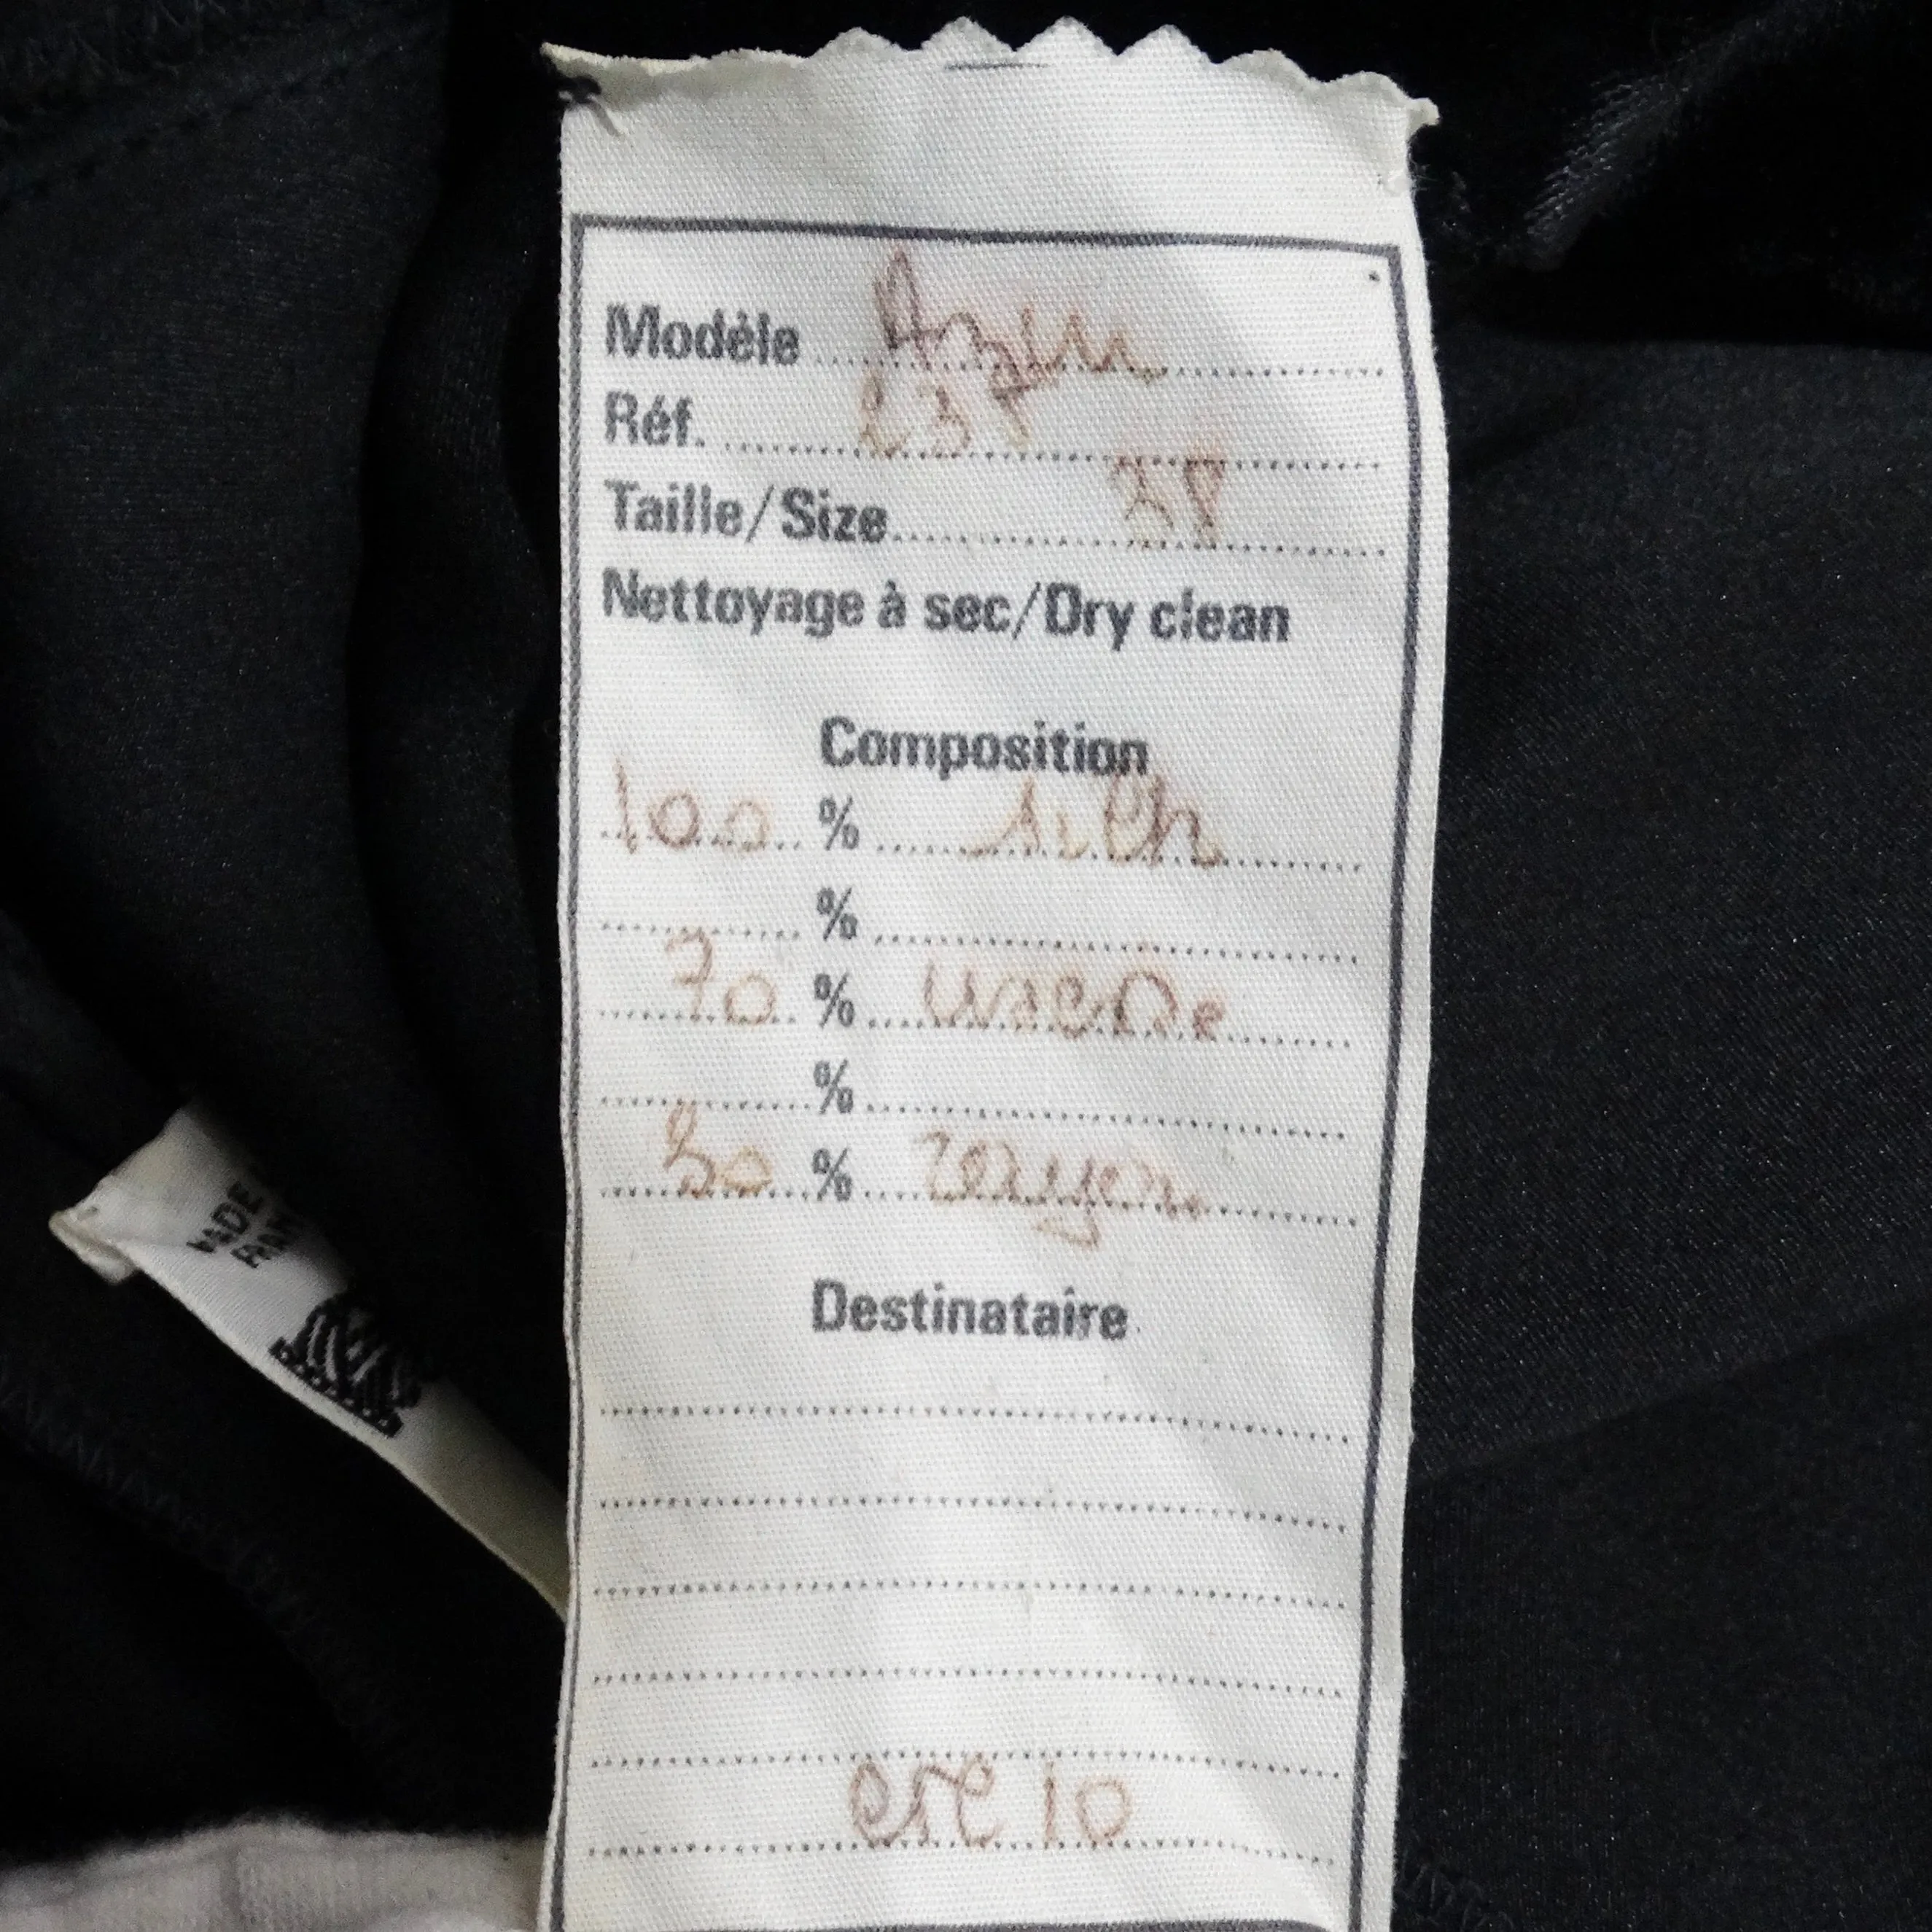 Modèle
Réf. 235
Taille/Size 38
Nettoyage à sec/Dry clean
Composition
100 % silk
%
70 %
%
30 % rayon
Destinataire
ete 10
MADE